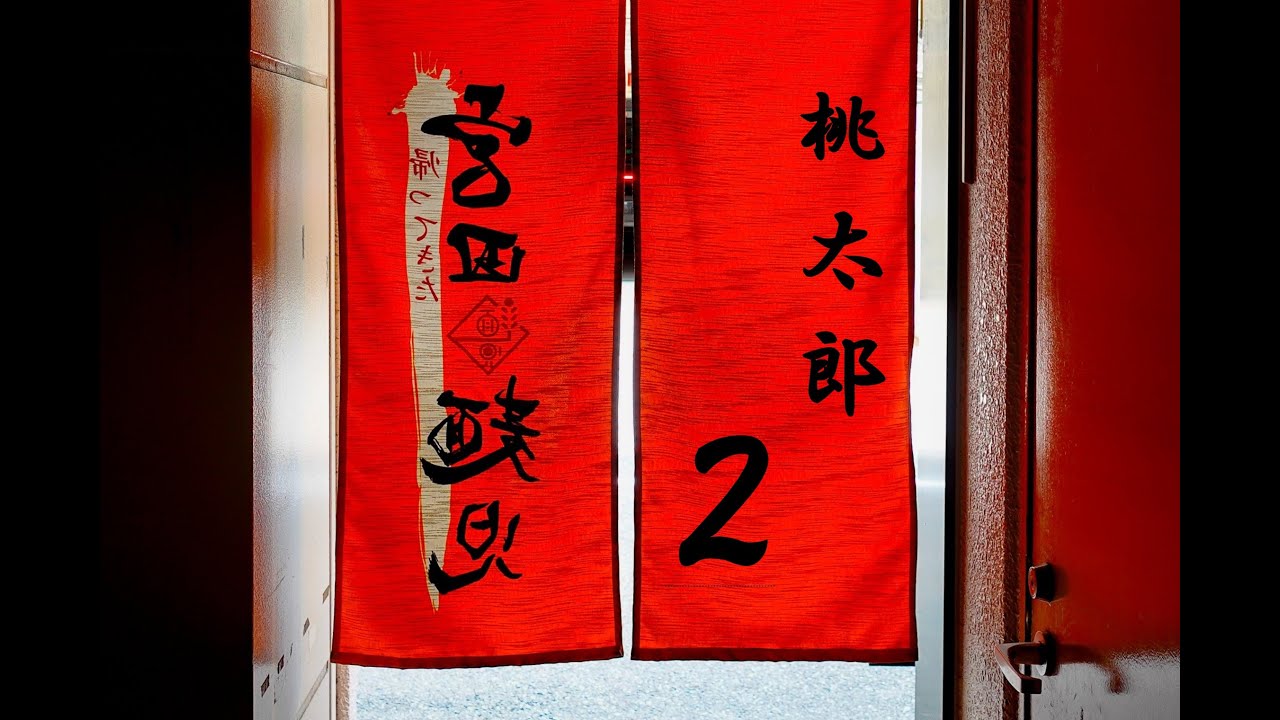 桃太郎
2
帰ってきた
宮田麺児